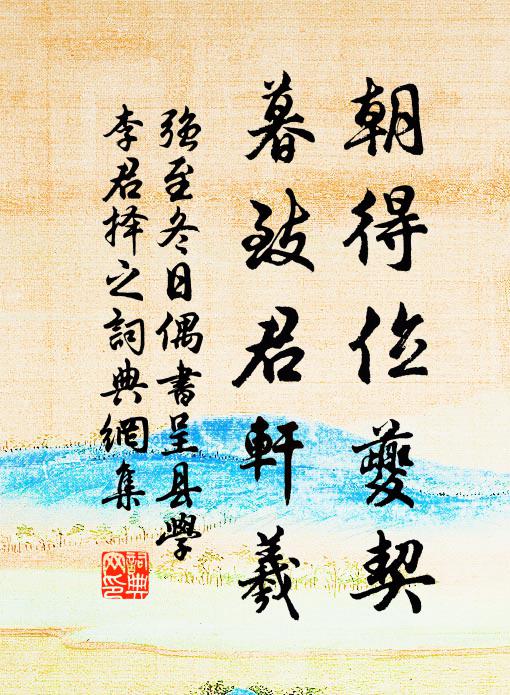 朝得位夔契
暮致君軒羲
強至冬日偶書呈县學
李君择之詞典網集
詞典網印